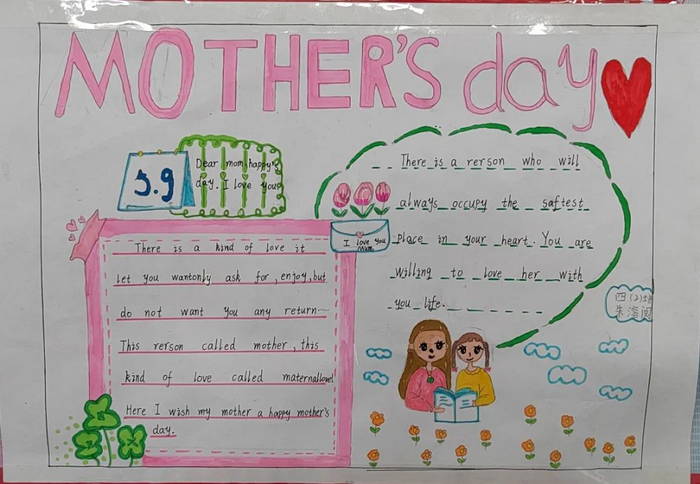 MOTHER'S day
5.9
Dear mom, happy
day. I love you
There is a rerson who will
always occupy the saftest
place in your heart. You are
willing to love her with
you life.
I love you
mom
There is a kind of love it
let you wantonly ask for, enjoy, but
do not want you any return…
This rerson called mother, this
kind of love called maternallove!
Here I wish my mother a happy mother's
day.
四(2)班
朱